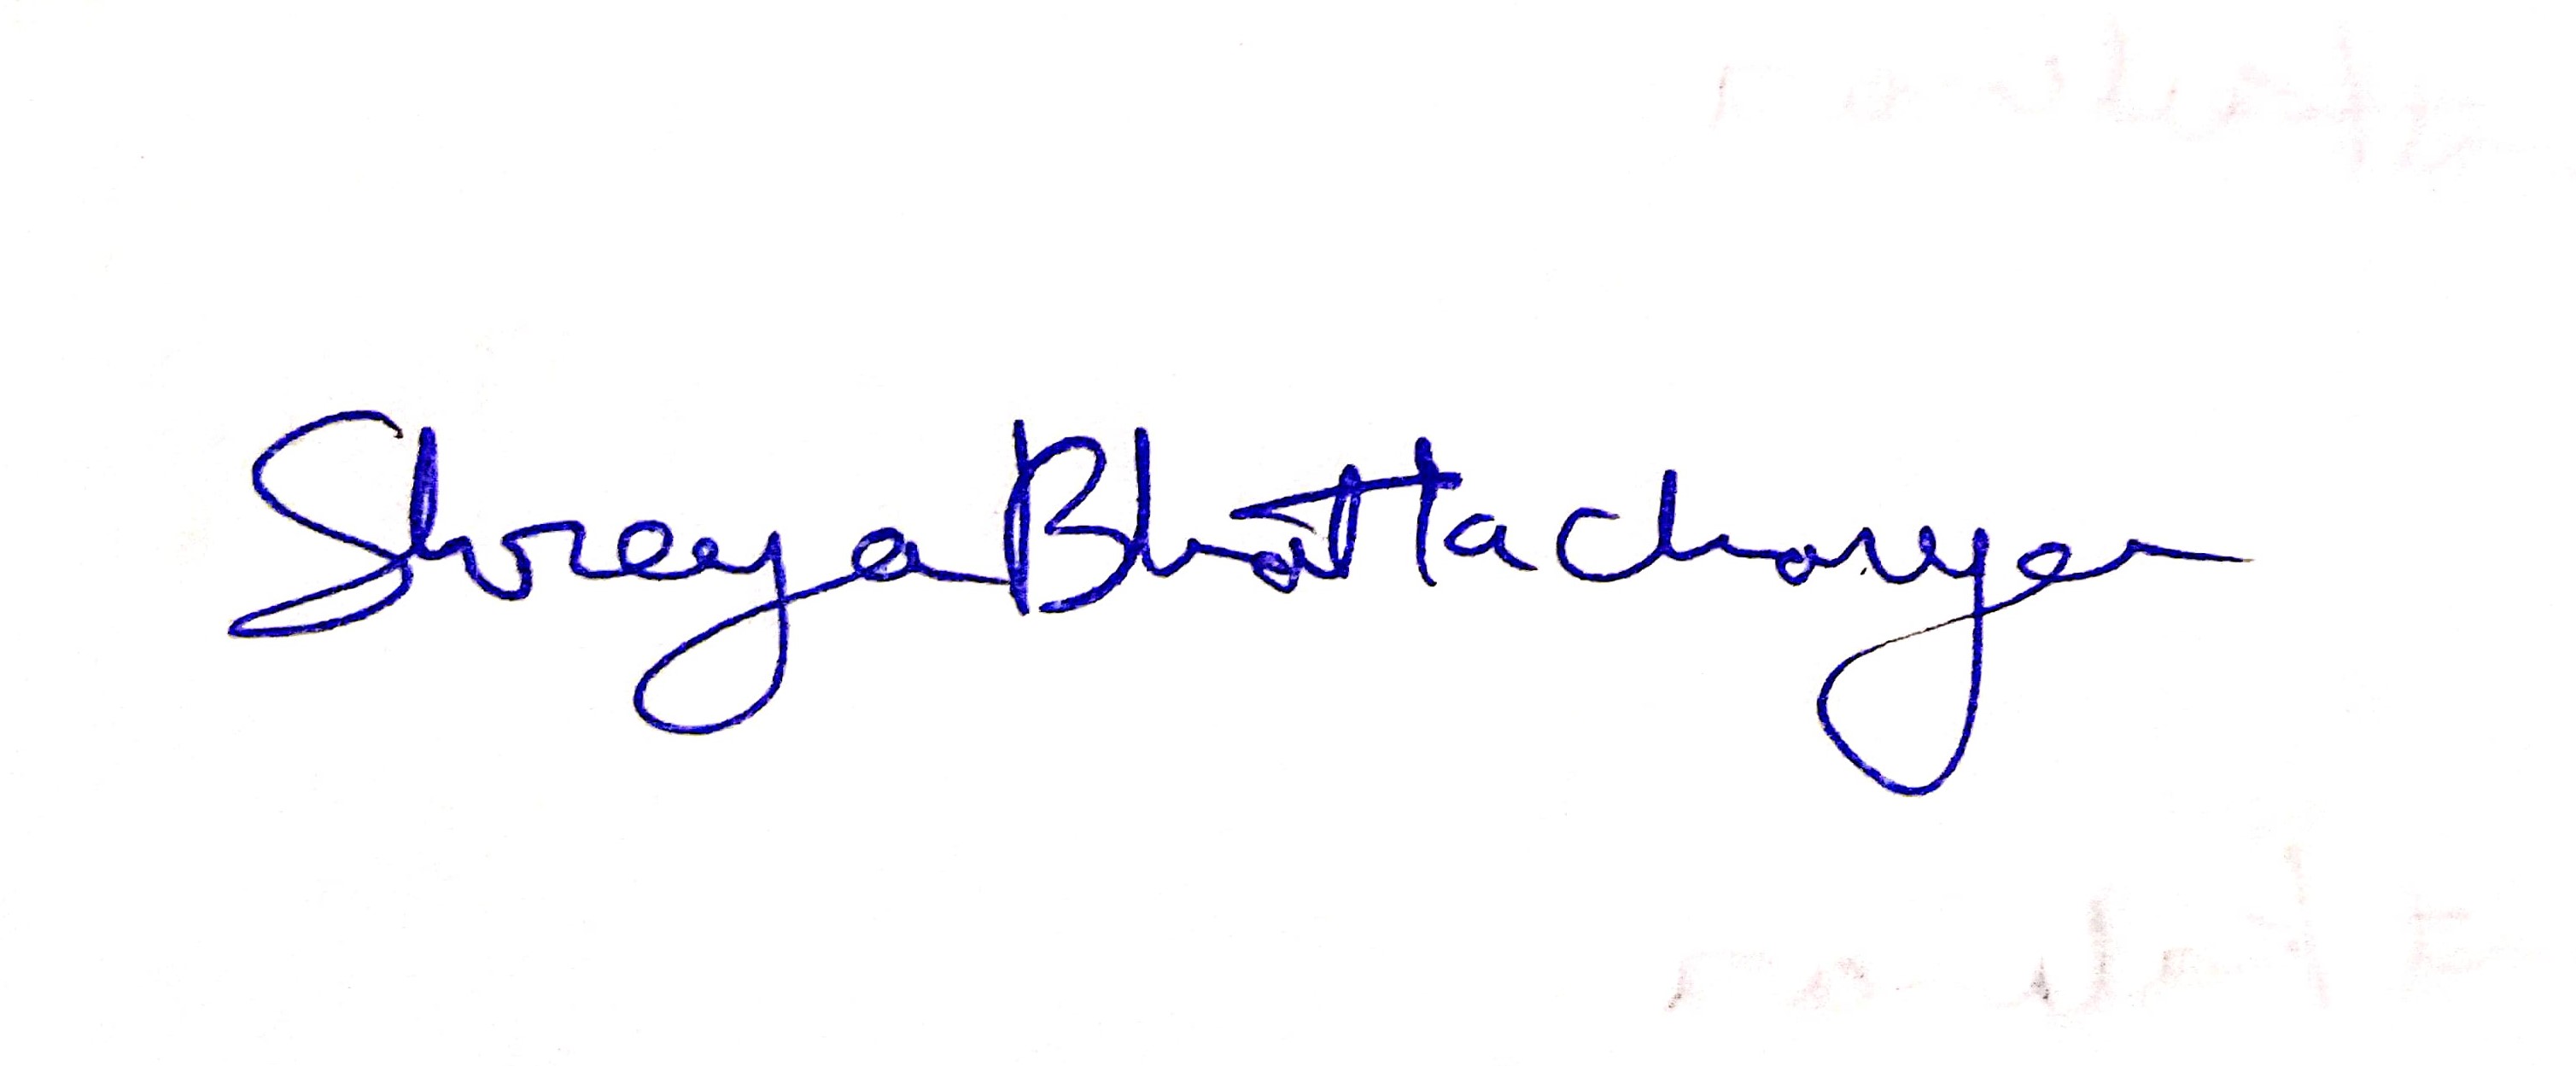 Shreya Bhattacharyya